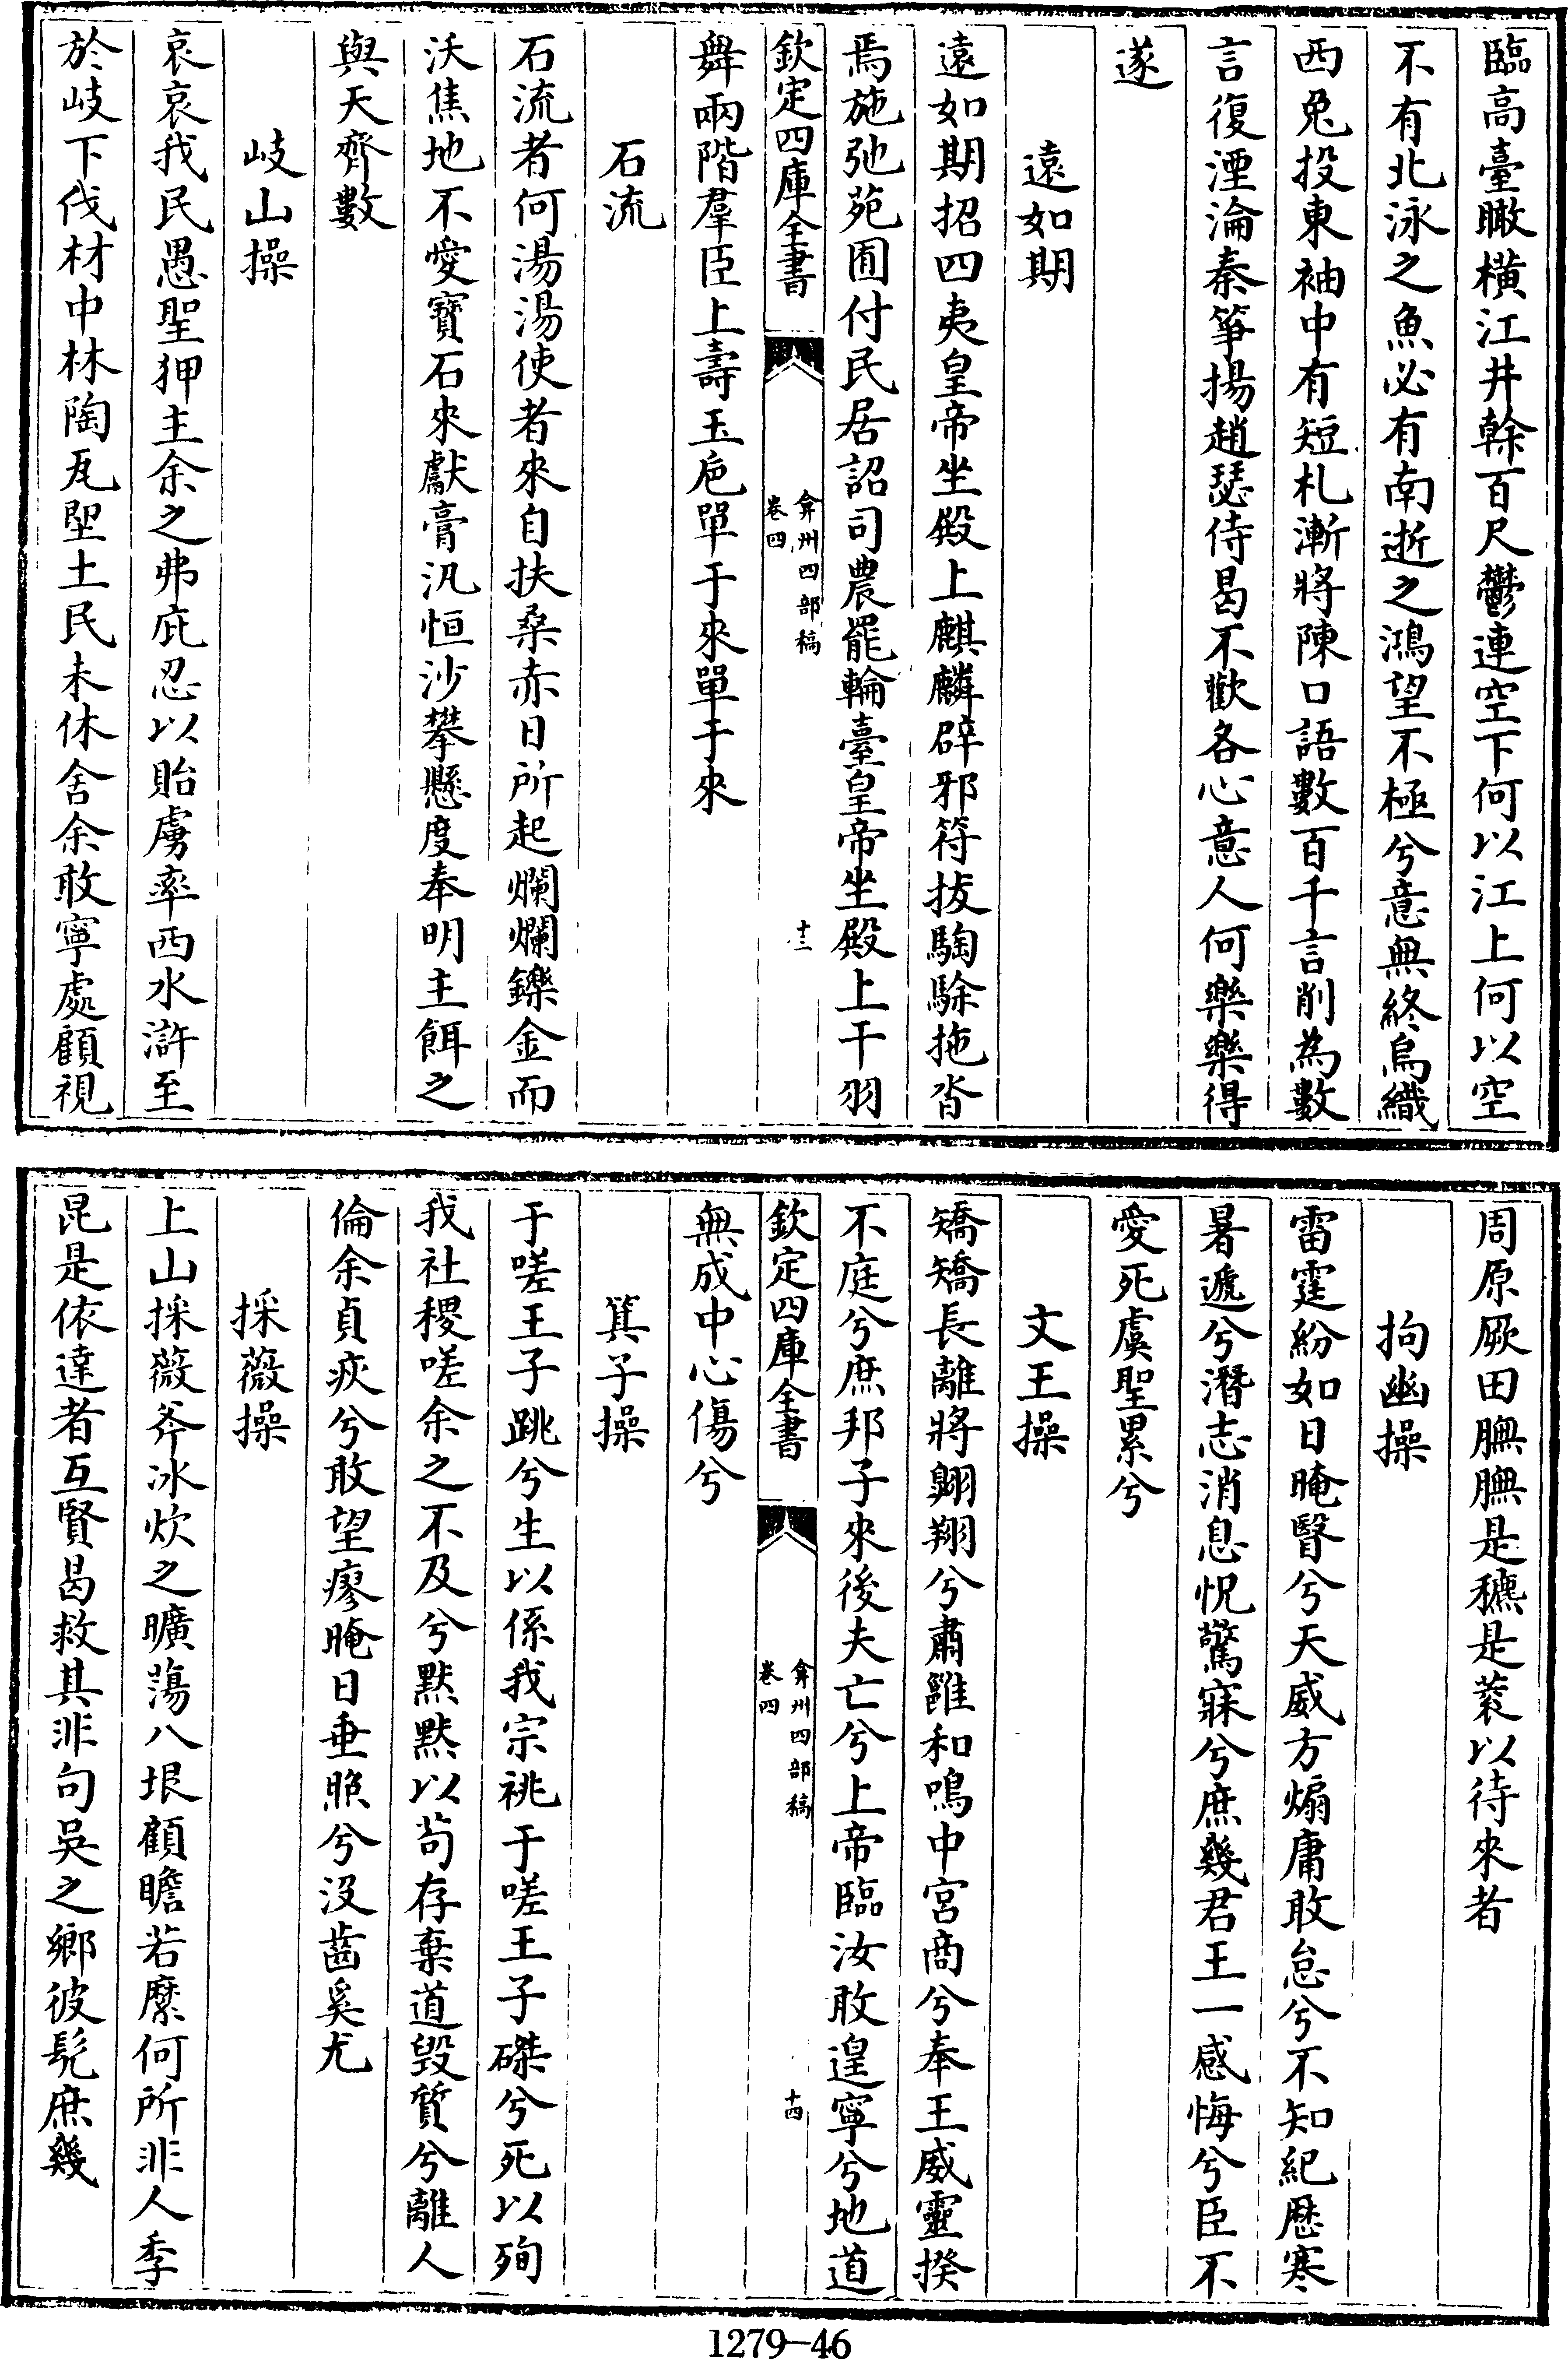 臨高臺瞰橫江井榦百尺鬱連空下何以江上何以空
不有北泳之魚必有南逝之鴻望不極兮意無終烏織
西兔投東袖中有短札漸將陳口語數百千言削為數
言復湮淪秦箏揚趙瑟侍曷不歡各心意人何樂樂得
遂
遠如期
遠如期招四夷皇帝坐殿上麒麟辟邪符拔騊駼拖沓
焉施弛苑囿付民居詔司農罷輪臺皇帝坐殿上干羽
欽定四庫全書
弇州四部稿
卷四
十三
舞兩階羣臣上壽玉巵單于來單于來
石流
石流者何湯湯使者來自扶桑赤日所起爛爛鑠金而
沃焦地不愛寶石來獻膏汎恒沙攀懸度奉明主餌之
與天齊數
岐山操
哀哀我民愚聖狎主余之弗庇忍以貽虜率西水滸至
於岐下伐材中林陶瓦堲土民未休舍余敢寧處顧視
周原厥田膴膴是穮是蓘以待來者
拘幽操
雷霆紛如日晻瞖兮天威方煽庸敢怠兮不知紀歷寒
暑遞兮潛志消息怳驚寐兮庶幾君王一感悔兮臣不
愛死虞聖累兮
文王操
矯矯長離將翺翔兮肅雝和鳴中宮商兮奉王威靈揆
不庭兮庶邦子來後夫亡兮上帝臨汝敢遑寧兮地道
欽定四庫全書
弇州四部稿
卷四
十四
無成中心傷兮
箕子操
于嗟王子跳兮生以係我宗祧于嗟王子磔兮死以殉
我社稷嗟余之不及兮默默以苟存棄道毀質兮離人
倫余貞疢兮敢望瘳晻日垂照兮没齒奚尤
採薇操
上山採薇斧冰炊之曠蕩八垠顧瞻若縻何所非人季
昆是依達者互賢曷救其非句吳之鄉彼髡庶幾
1279-46